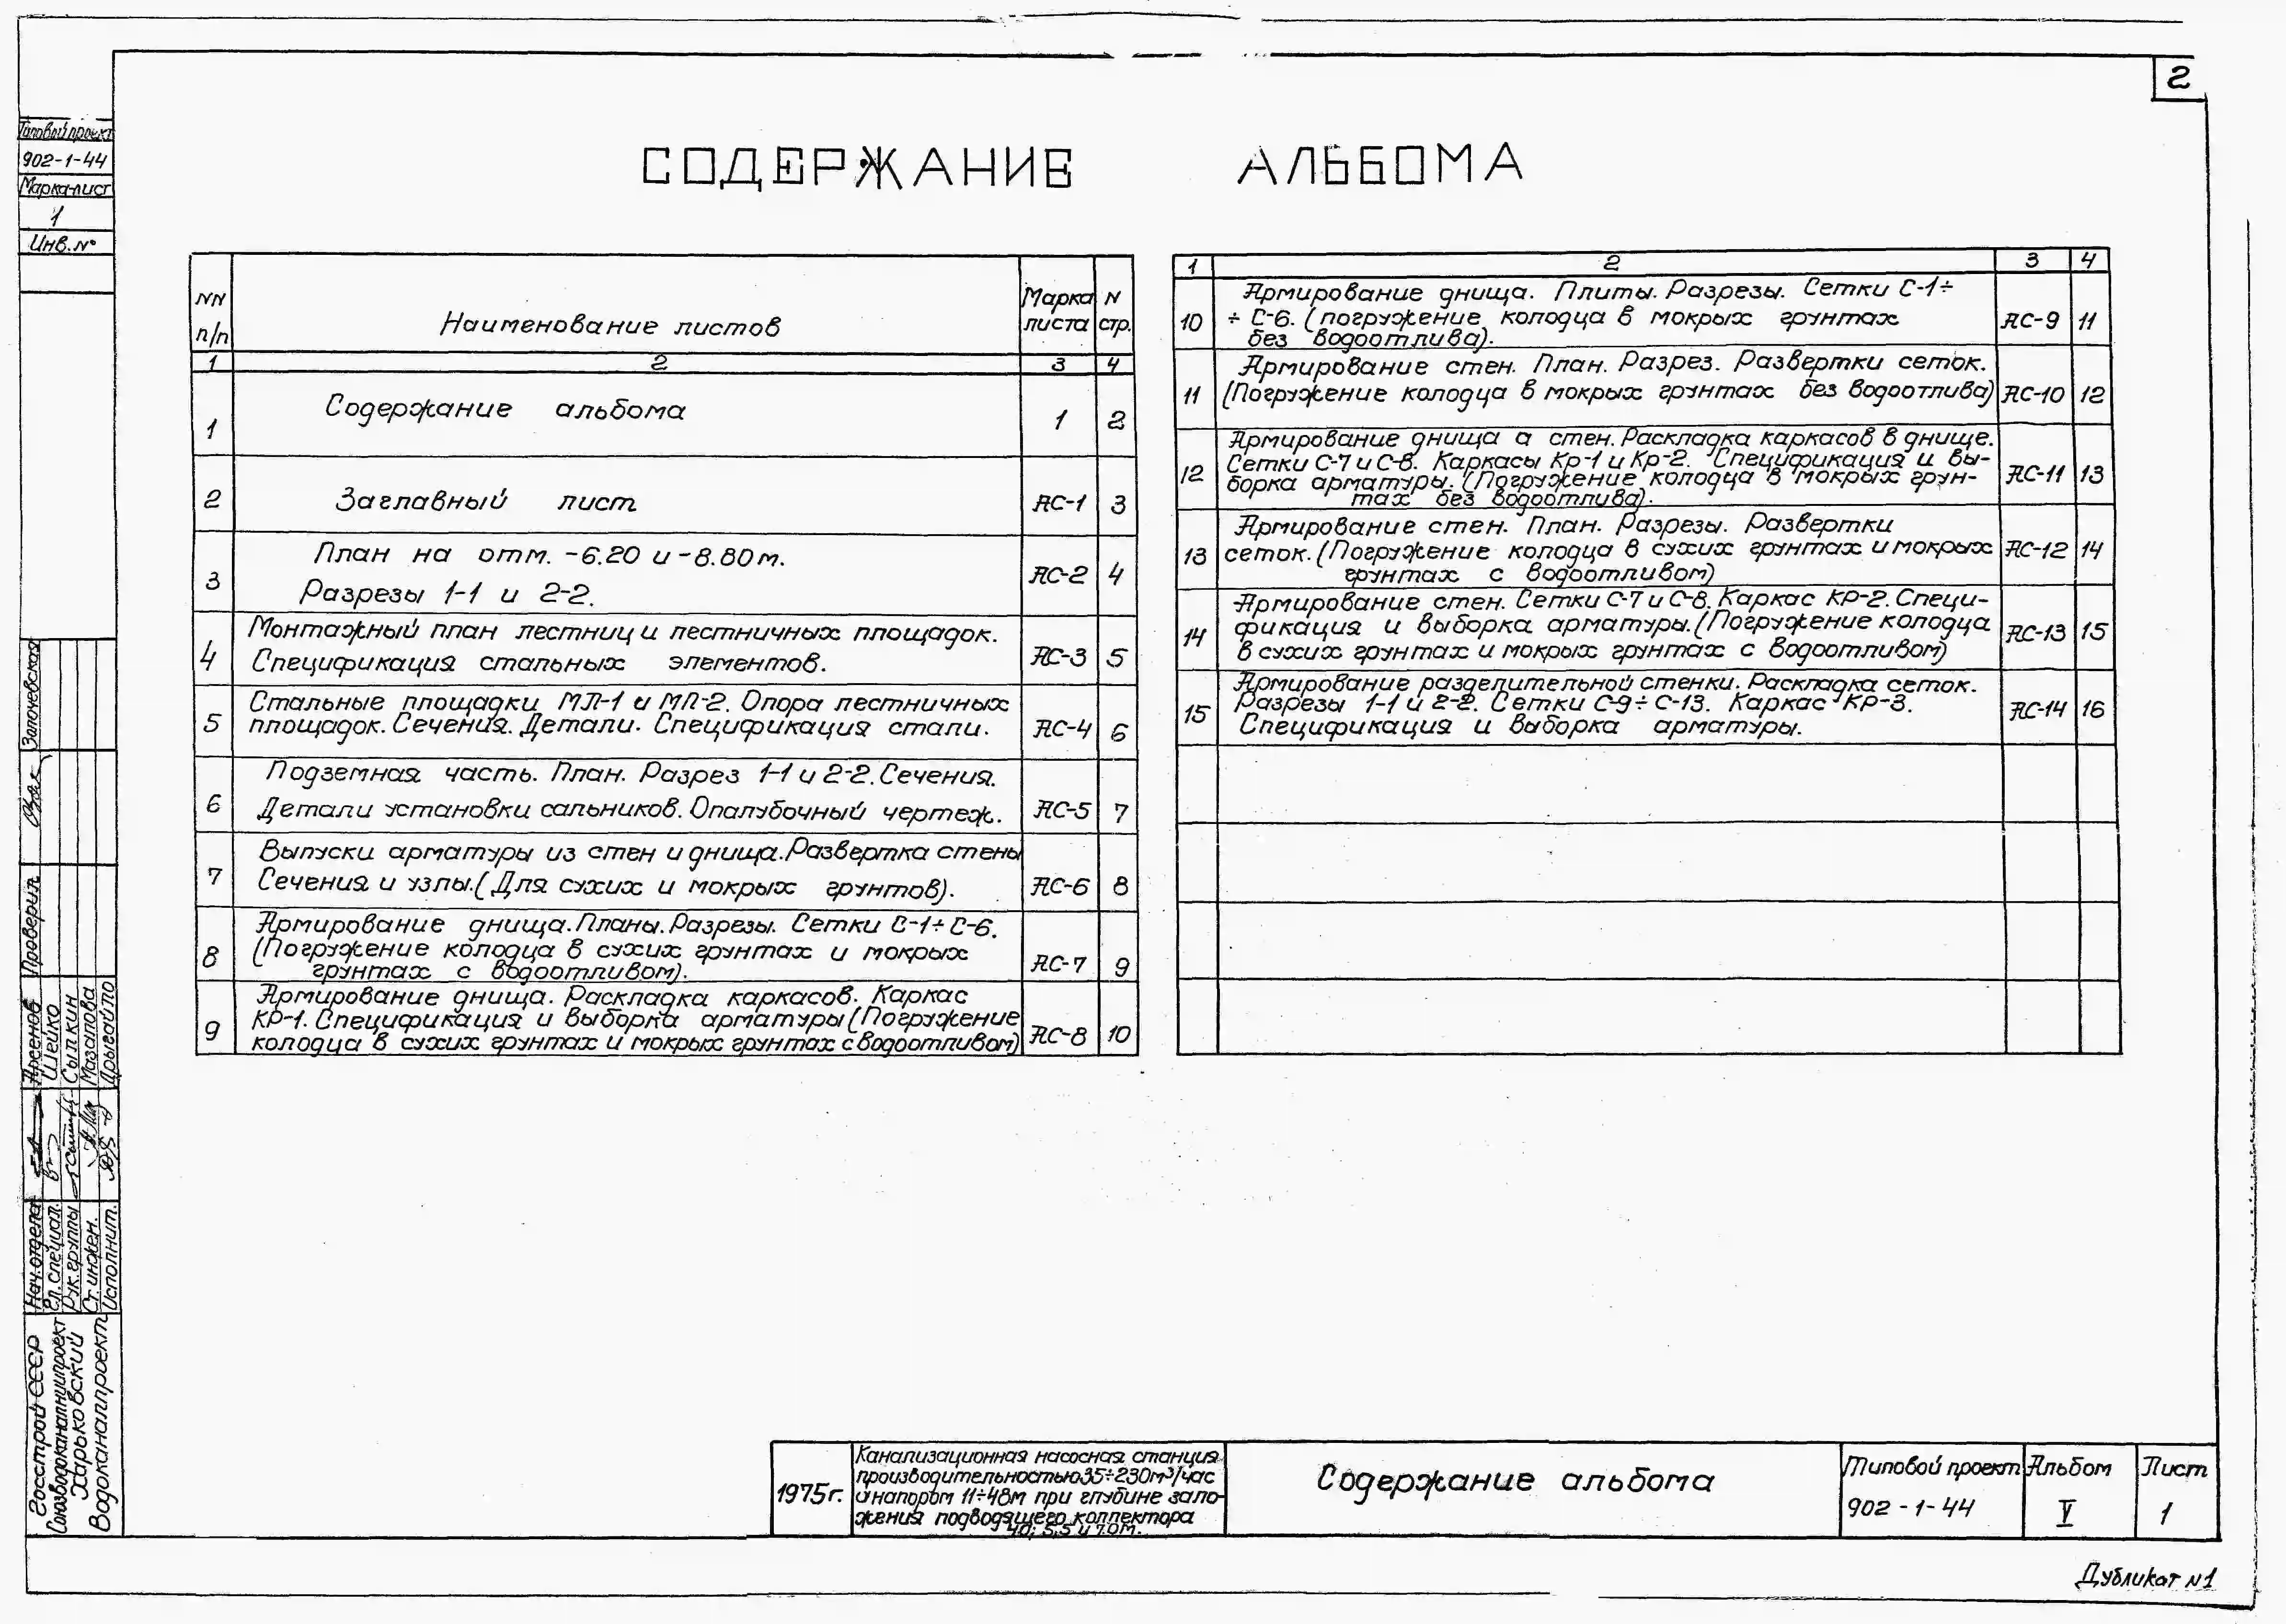 2
СОДЕРЖАНИЕ АЛЬБОМА
Типовой проект
902-1-44
Марка-лист
1
Инв. №
NN п/п
Наименование листов
Марка листа
N стр.
1 2 3 4
1 Содержание альбома 1 2
2 Заглавный лист АС-1 3
3 План на отм. -6.20 и -8.80м.
Разрезы 1-1 и 2-2. АС-2 4
4 Монтажный план лестниц и лестничных площадок.
Спецификация стальных элементов. АС-3 5
5 Стальные площадки МЛ-1 и МЛ-2. Опора лестничных
площадок. Сечения. Детали. Спецификация стали. АС-4 6
6 Подземная часть. План. Разрез 1-1 и 2-2. Сечения.
Детали установки сальников. Опалубочный чертеж. АС-5 7
7 Выпуски арматуры из стен и днища. Развертка стены
Сечения и узлы. (Для сухих и мокрых грунтов). АС-6 8
8 Армирование днища. Планы. Разрезы. Сетки С-1÷С-6.
(Погружение колодца в сухих грунтах и мокрых
грунтах с водоотливом). АС-7 9
9 Армирование днища. Раскладка каркасов. Каркас
КР-1. Спецификация и выборка арматуры (Погружение
колодца в сухих грунтах и мокрых грунтах с водоотливом) АС-8 10
1 2 3 4
10 Армирование днища. Плиты. Разрезы. Сетки С-1÷
÷ С-6. (погружение колодца в мокрых грунтах
без водоотлива). АС-9 11
11 Армирование стен. План. Разрез. Развертки сеток.
(Погружение колодца в мокрых грунтах без водоотлива) АС-10 12
12 Армирование днища а стен. Раскладка каркасов в днище.
Сетки С-7 и С-8. Каркасы Кр-1 и Кр-2. Спецификация и вы-
борка арматуры. (Погружение колодца в мокрых грун-
тах без водоотлива). АС-11 13
13 Армирование стен. План. Разрезы. Развертки
сеток. (Погружение колодца в сухих грунтах и мокрых
грунтах с водоотливом) АС-12 14
14 Армирование стен. Сетки С-7 и С-8. Каркас КР-2. Специ-
фикация и выборка арматуры. (Погружение колодца
в сухих грунтах и мокрых грунтах с водоотливом) АС-13 15
15 Армирование разделительной стенки. Раскладка сеток.
Разрезы 1-1 и 2-2. Сетки С-9÷С-13. Каркас КР-3.
Спецификация и выборка арматуры. АС-14 16
Проверил
Нач. отдела Арсенов
Гл. специал. Шейко
Рук. группы Сыпкин
Ст. инжен. Мазалова
Исполнит.
Госстрой СССР
Союзводоканалниипроект
Харьковский
Водоканалпроект
1975г.
Канализационная насосная станция
производительностью 35÷230м³/час
и напором 11÷48м при глубине зало-
жения подводящего коллектора
4.0; 5.5 и 7.0м.
Содержание альбома
Типовой проект
902-1-44
Альбом
V
Лист
1
Дубликат №1